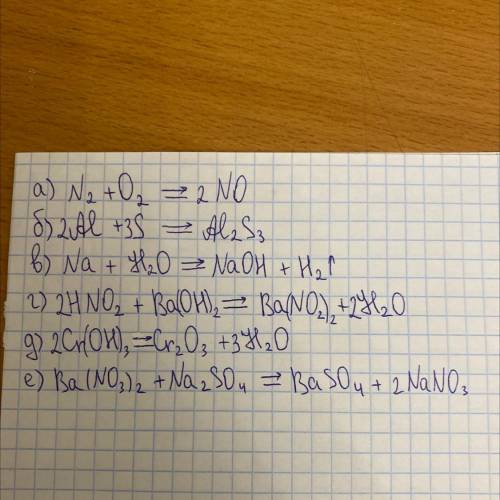 а) N₂ + O₂ = 2 NO
б) 2Al + 3S = Al₂S₃
в) Na + H₂O = NaOH + H₂↑
г) 2HNO₂ + Ba(OH)₂ = Ba(NO₂)₂ + 2H₂O
д) 2Cr(OH)₃ = Cr₂O₃ + 3H₂O
е) Ba(NO₃)₂ + Na₂SO₄ = BaSO₄ + 2NaNO₃